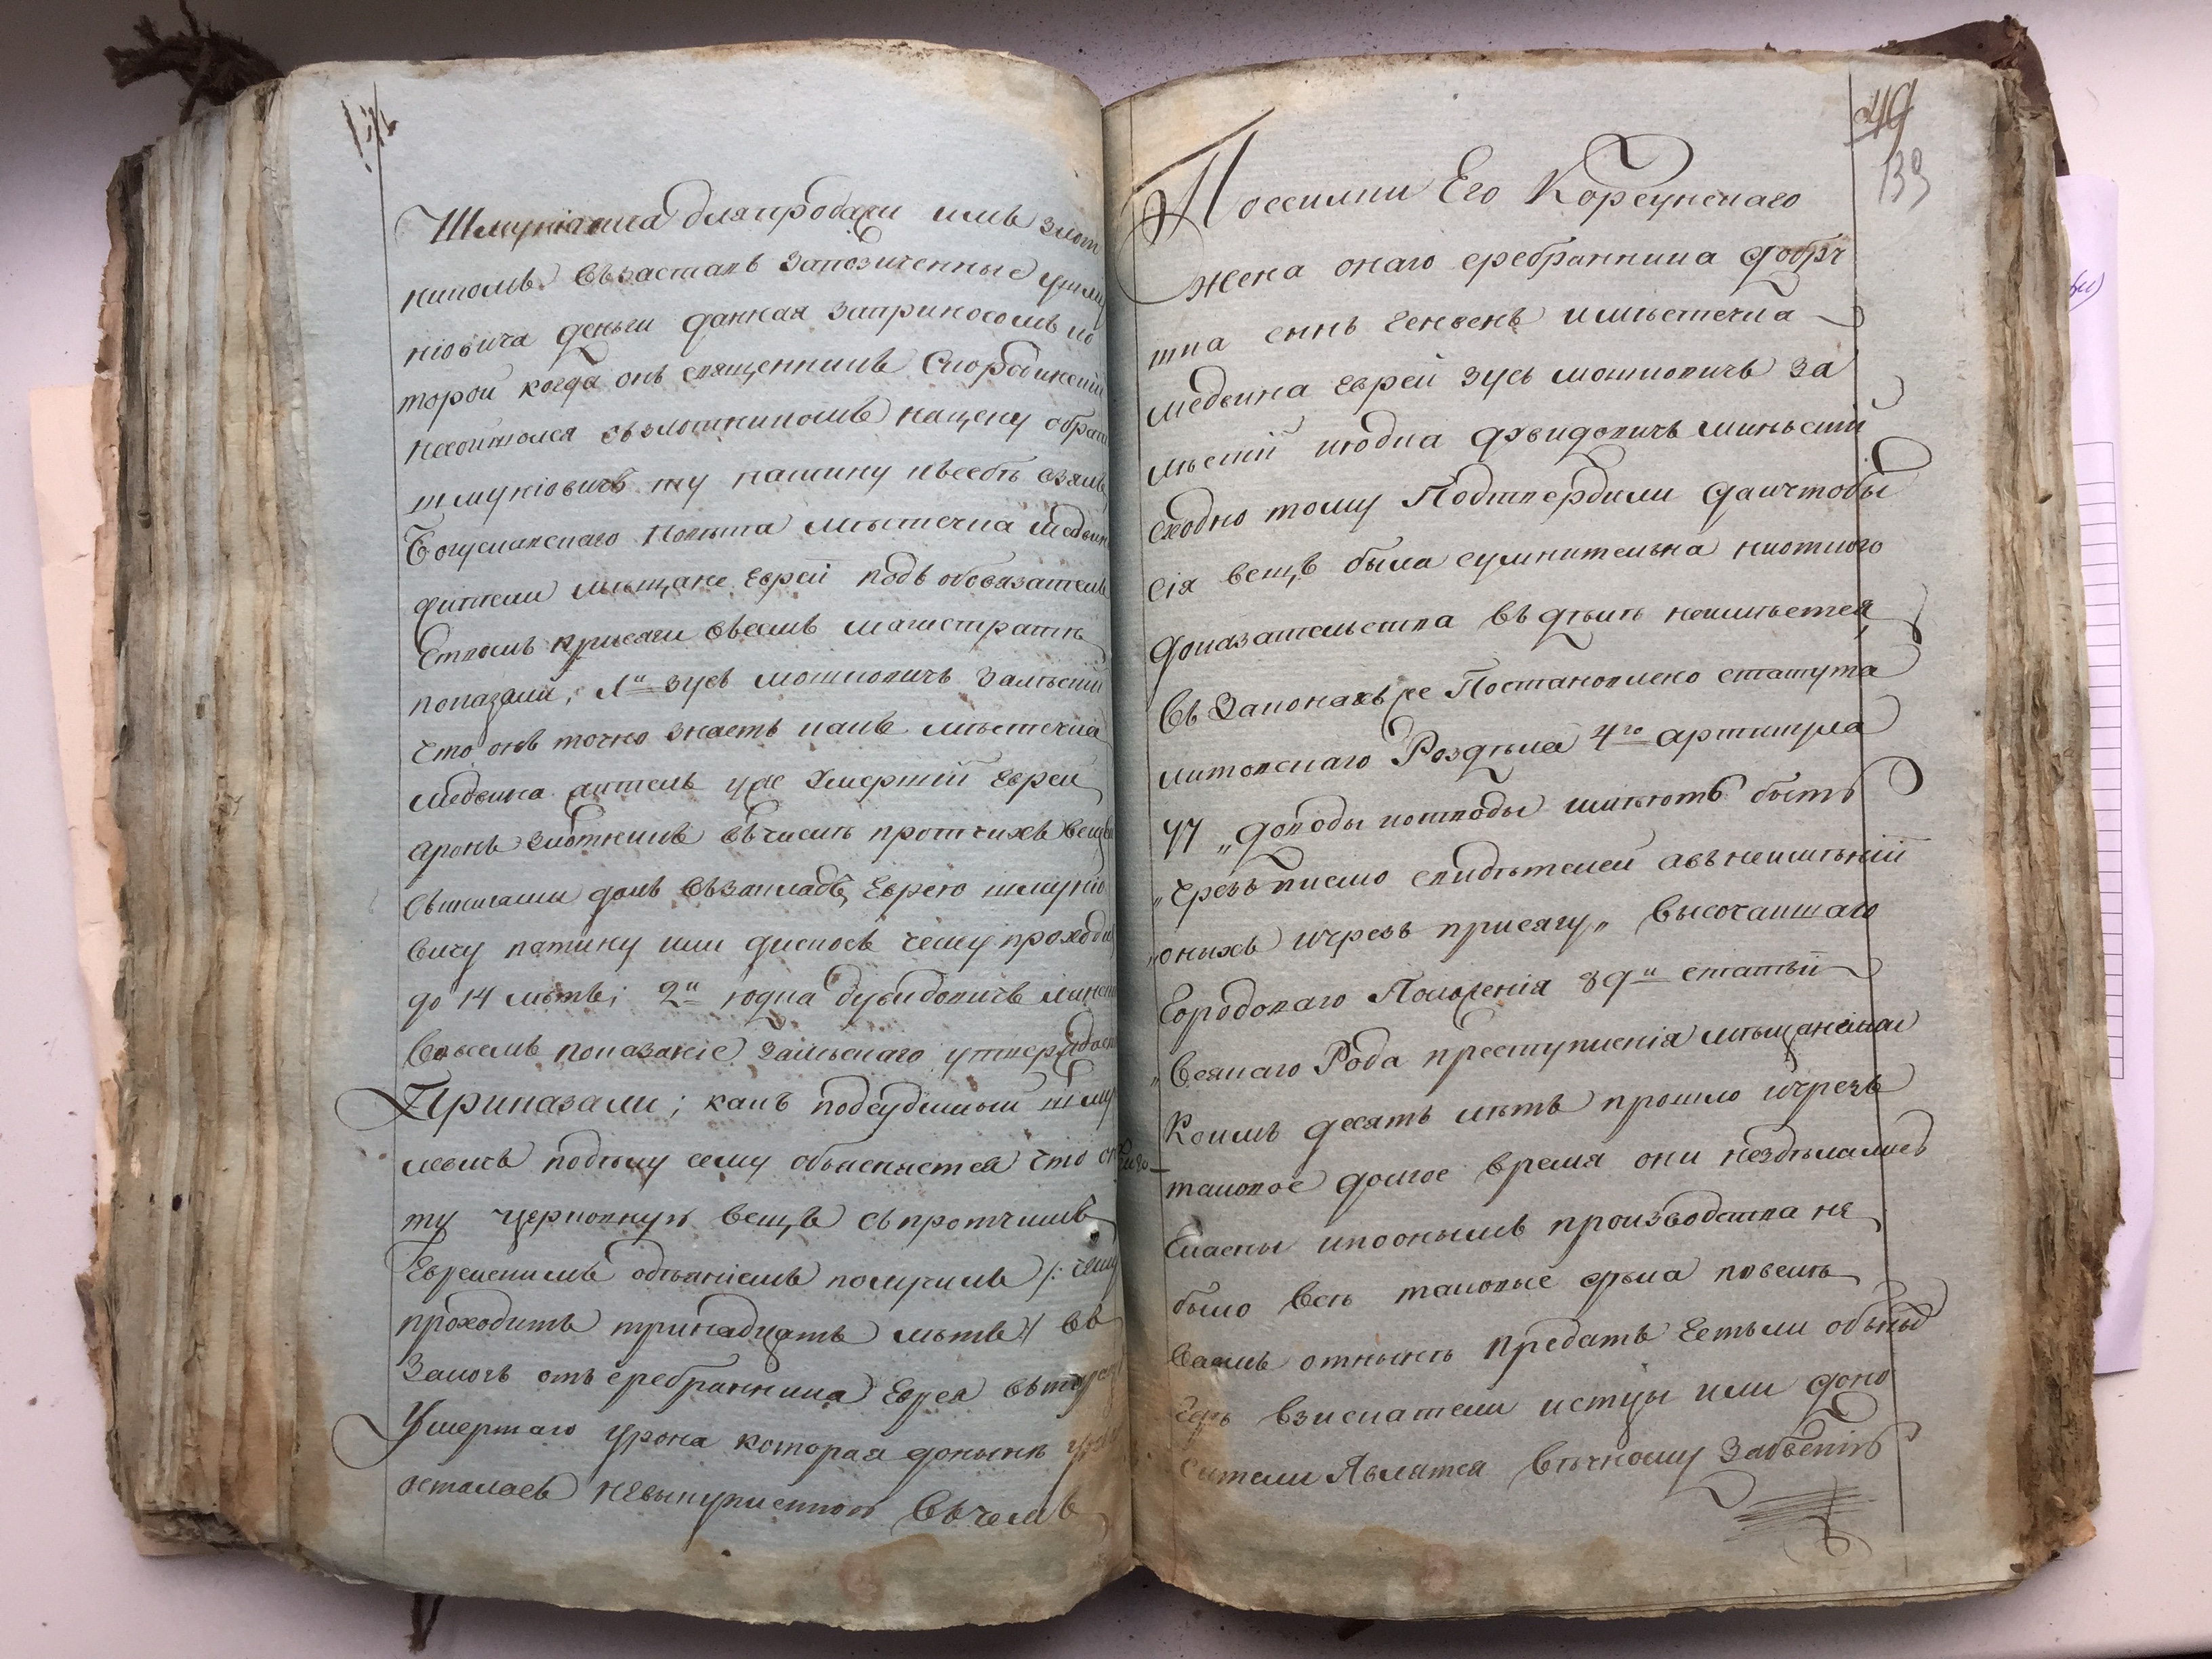 Шмуніовича для продажи имъ злот
никомъ въ заставъ запозиченные у шму
ніовича деньги данная за приносомъ ко
торой когда онъ священникъ Скородинскій
несойшолся зъ злотникомъ нацену обрат
шмуніовичъ ту патину къ себѣ взялъ
Богуславскаго повѣта мѣстечка Медвин
жители мѣщане Евреи подъ обовязатель
ствомъ присяги въ семъ магистратѣ
показали, 1й Зусь мошковичъ Замѣскій
что онъ точно знаетъ какъ мѣстечка
Медвина житель уже Умершій Еврей
аронъ Злотникъ въ числѣ протчихъ вещей
съ книгами далъ въ закладъ Еврею шмуніо
вичу патину или дискосъ чему проходи
до 14 лѣтъ; 2й юдка дувидовичъ минск
Во всемъ показаніе Замѣскаго утвержда
Приказали; какъ подсудимый шму
левичъ по дѣлу сему обясняется что он
ту церковную вещъ съ протчимъ
Еврейскимъ одѣяніемъ получилъ /: чему
проходитъ тринадцать лѣтъ :/ въ
Залогъ отъ серебранника Еврея
Умершаго урона которая донынѣ
осталась невыкупленною въ чемъ
49
139
Поссилки Его Корсунскаго
жена онаго серебранника добрч
тка сынъ Гензель имѣстечка
Медвина Еврей Зусь мошковичъ За
мѣскій июдка дувидовичъ миньскій
сходно тому Подтвердили да и чтобы
сія вещъ была сумнительна ниоткого
доказательства въ дѣлѣ неимѣется
Въ Законахъ же Постановлено статута
литовскаго Роздѣла 4го артикула
77 „доводы и отводы имѣютъ быть
„чрезъ писмо свидѣтелей а въ неимѣніи
„оныхъ ичрезъ присягу„ высочайшаго
Городоваго Положенія 89й статьи
„Всякаго Рода преступленія мѣщанскаи
Коимъ десять лѣтъ прошло и чрезъ
таковое долгое время они нездѣлались
Гласны и по онымъ производства не
было всѣ таковые дѣла повелѣ
Ваемъ отнынѣ предать Естьли обыныѣ
Гдѣ взискатели истцы или доно
сители Являтся вѣчному Забвенію